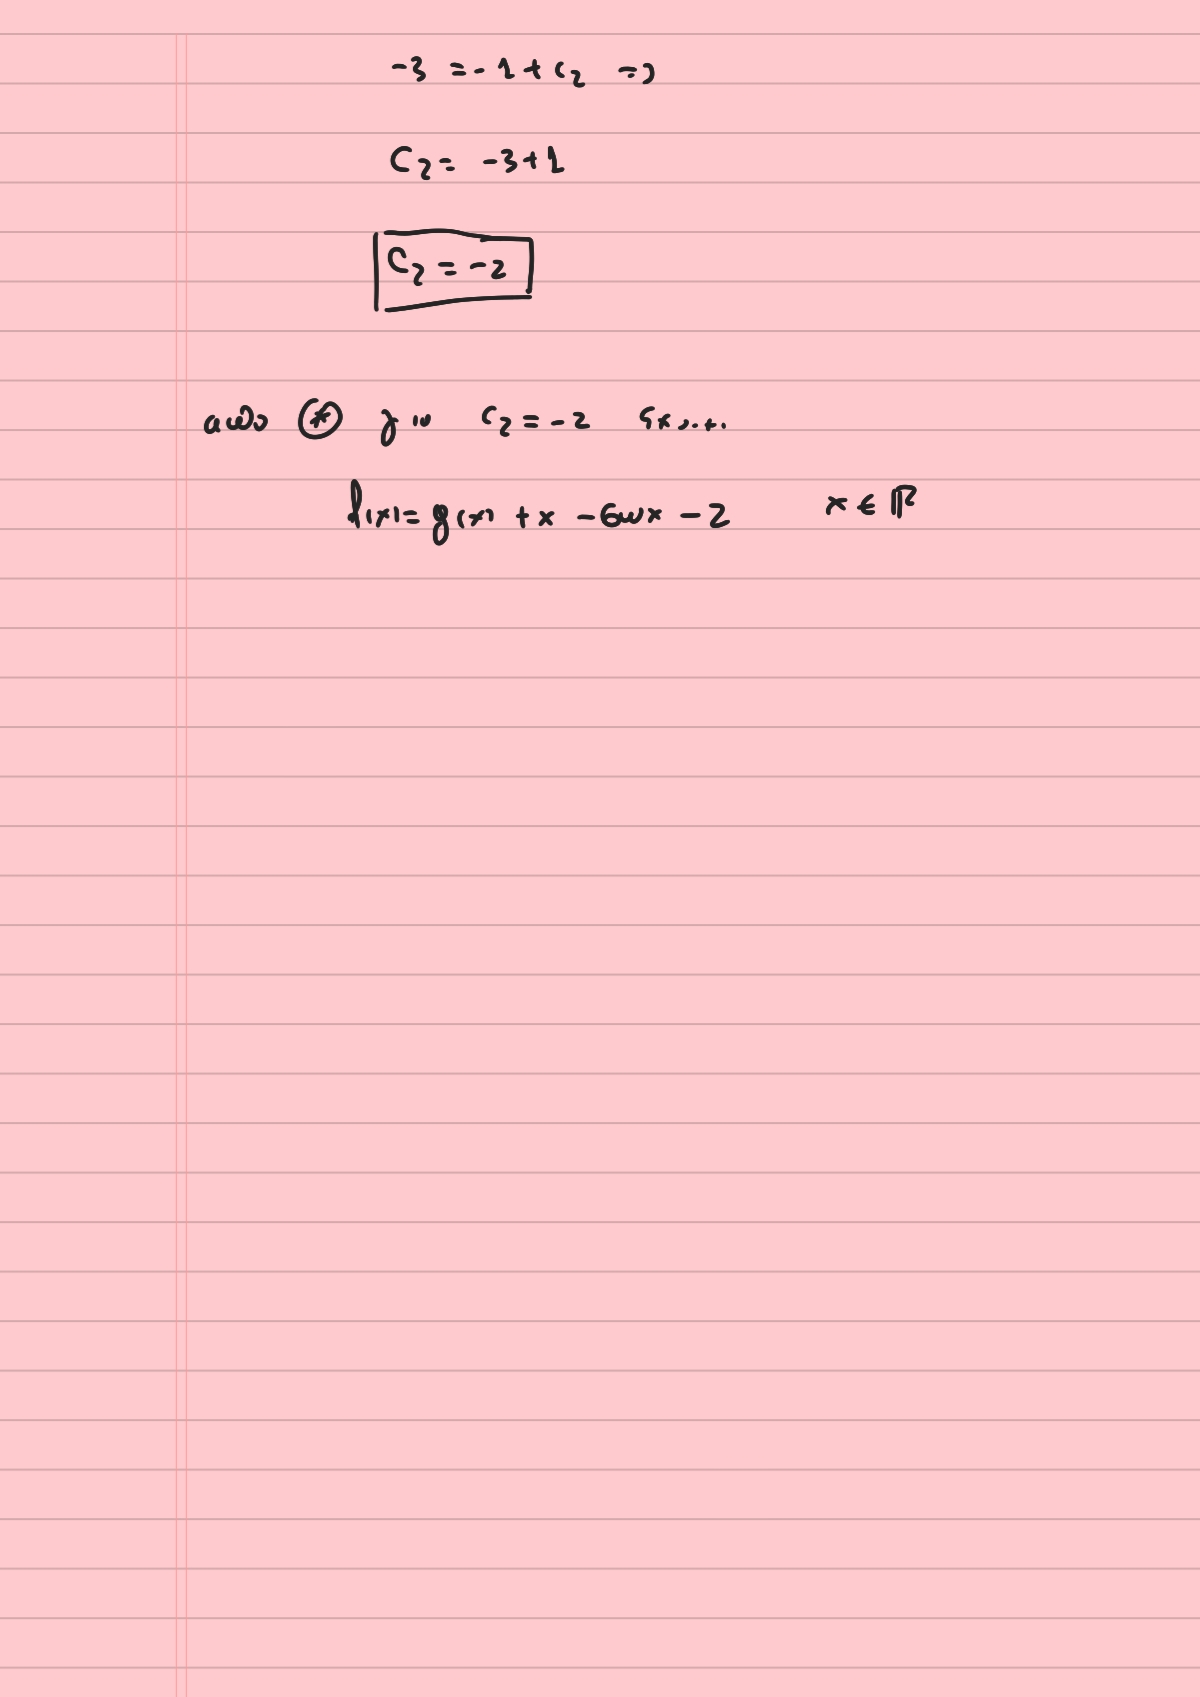 -3 = -1 + c₂ =>
C₂ = -3+1
C₂ = -2
από (*) για C₂ = -2 έχουμε
f(x) = g(x) + x - συνx - 2 x ∈ ℝ